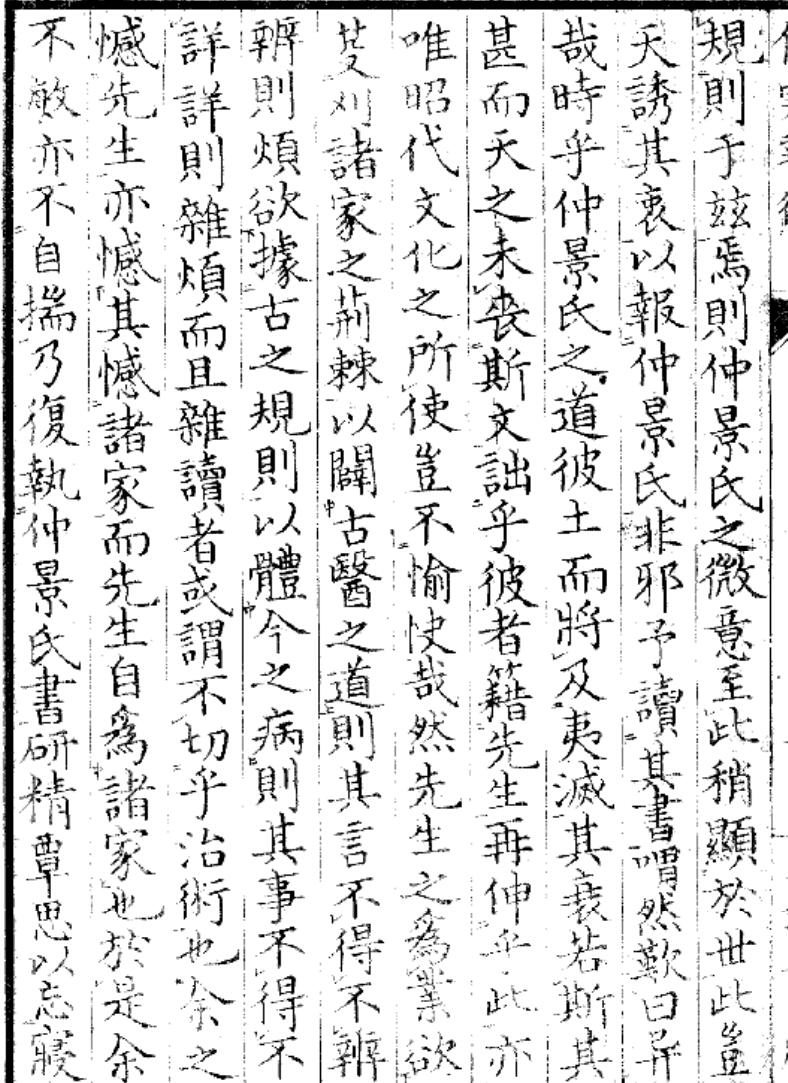 規則于茲焉則仲景氏之微意至此稍顯於世此豈
天誘其衷以報仲景氏非邪予讀其書喟然歎曰异
哉時乎仲景氏之道彼土而將及夷滅其衰若斯其
甚而天之未喪斯文詘乎彼者籍先生再伸乎此亦
唯昭代文化之所使豈不愉快哉然先生之為業欲
芟刈諸家之荊棘以闢古醫之道則其言不得不辨
辨則煩欲據古之規則以體今之病則其事不得不
詳詳則雜煩而且雜讀者或謂不切乎治術也余之
憾先生亦憾其憾諸家而先生自為諸家也於是余
不敏亦不自揣乃復執仲景氏書研精覃思以忘寢